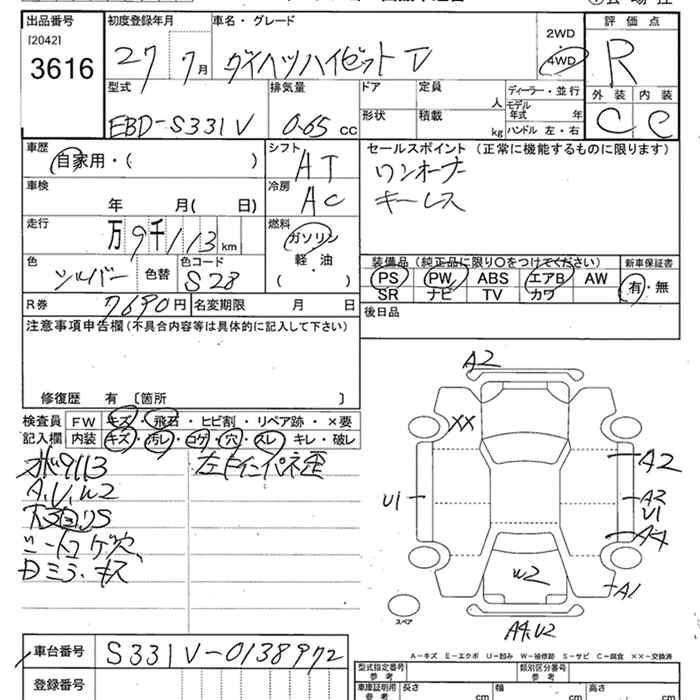 出品番号
[2042]
3616
初度登録年月
27 7月
車名・グレード
ダイハツハイゼット
2WD
4WD
評価点
R
外装 内装
C C
型式
EBD-S331V
排気量
0.65 cc
ドア
形状
定員 人
積載 kg
ディーラー・並行
モデル年式 年
ハンドル 左・右
車歴
自家用・( )
シフト
AT
車検
年 月( 日)
冷房
AC
走行
万9千113 km
燃料
ガソリン
軽・油
( )
色
シルバー
色替
色コード
S28
R券
7690円
名変期限 月 日
セールスポイント(正常に機能するものに限ります)
ワンオーナー
キーレス
装備品(純正品に限り○をつけてください)
新車保証書
PS PW ABS エアB AW
SR ナビ TV カワ
有・無
後日品
注意事項申告欄(不具合内容等は具体的に記入して下さい)
修復歴 有 〔箇所 〕
検査員記入欄
FW キズ・飛石・ヒビ割・リペア跡・×要
内装 キズ・汚レ・コゲ・穴・スレ・キレ・破レ
A.U.W2
シートコゲ穴、
Dミラーキズ
左Fインパネ歪
A2
XX
A2
U1
A2
U1
A4
W2
A1
A4.U2
スペア
A-キズ E-エクボ U-凹み W-補修跡 S-サビ C-腐食 ××-交換済
車台番号
S331V-0138972
登録番号
型式指定番号
参考
類別区分番号
参考
車庫証明用
参考
長さ cm
幅 cm
高さ cm